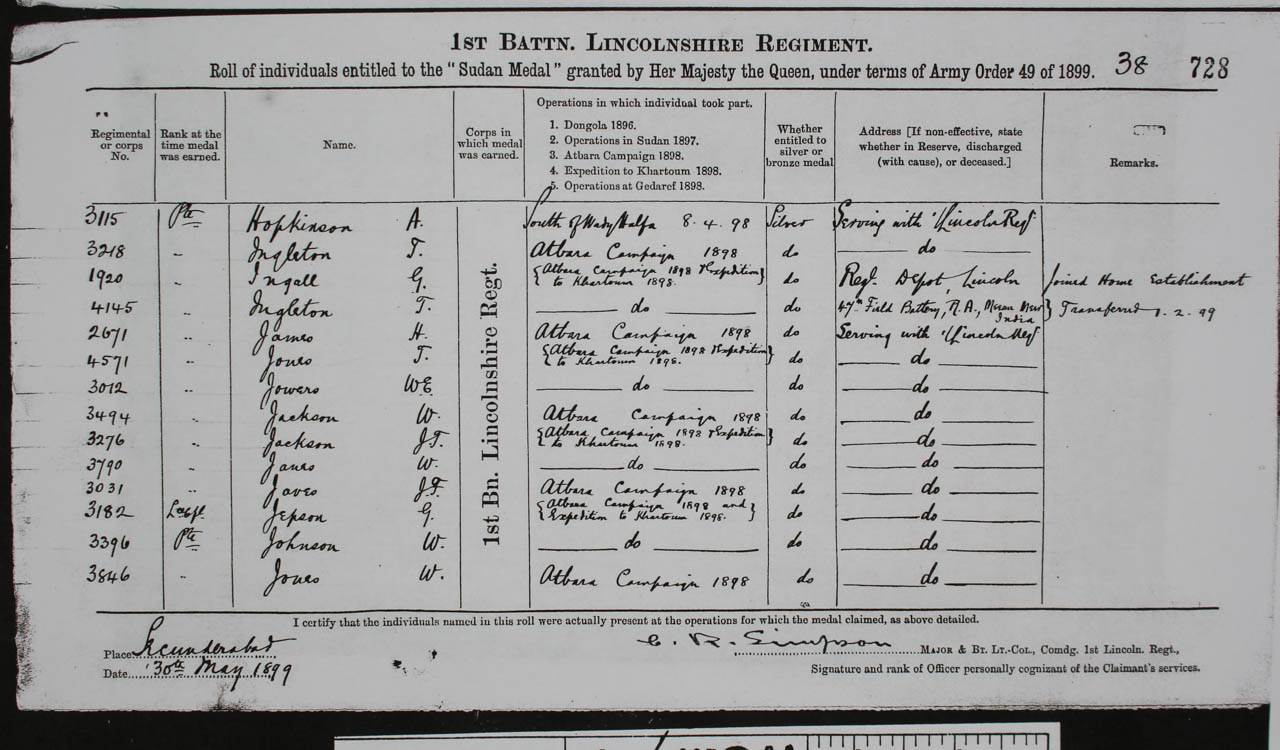 1ST BATTN. LINCOLNSHIRE REGIMENT.
Roll of individuals entitled to the "Sudan Medal" granted by Her Majesty the Queen, under terms of Army Order 49 of 1899. 38 728
Regimental or corps No.
Rank at the time medal was earned.
Name.
Corps in which medal was earned.
Operations in which individual took part.
1. Dongola 1896.
2. Operations in Sudan 1897.
3. Atbara Campaign 1898.
4. Expedition to Khartoum 1898.
5. Operations at Gedaref 1898.
Whether entitled to silver or bronze medal
Address [If non-effective, state whether in Reserve, discharged (with cause), or deceased.]
Remarks.
1st Bn. Lincolnshire Regt.
3115 Pte Hopkinson A. South of Wady Halfa 8.4.98 Silver Serving with 1/Lincoln Regt
3218 " Ingleton T. Atbara Campaign 1898 do do
1920 " Ingall G. {Atbara Campaign 1898 & Expedition to Khartoum 1898.} do Regl. Depot, Lincoln Joined Home Establishment
4145 " Ingleton T. do do 47th Field Battery, R.A., India } Transferred 1.2.99
2671 " James H. Atbara Campaign 1898 do Serving with 1/Lincoln Regt
4571 " Jones T. {Atbara Campaign 1898 & Expedition to Khartoum 1898.} do do
3012 " Jowers WE do do do
3494 " Jackson W. Atbara Campaign 1898 do do
3276 " Jackson J.T. {Atbara Campaign 1898 & Expedition to Khartoum 1898.} do do
3790 " W. do do do
3031 " J.T. Atbara Campaign 1898 do do
3182 Jepson G. {Atbara Campaign 1898 and Expedition to Khartoum 1898.} do do
3396 Pte Johnson W. do do do
3846 " Jones W. Atbara Campaign 1898 do do
I certify that the individuals named in this roll were actually present at the operations for which the medal claimed, as above detailed.
Place Secunderabad
Date 30th May 1899
C. R. Simpson MAJOR & BT. LT.-COL., Comdg. 1st Lincoln. Regt.,
Signature and rank of Officer personally cognizant of the Claimant's services.